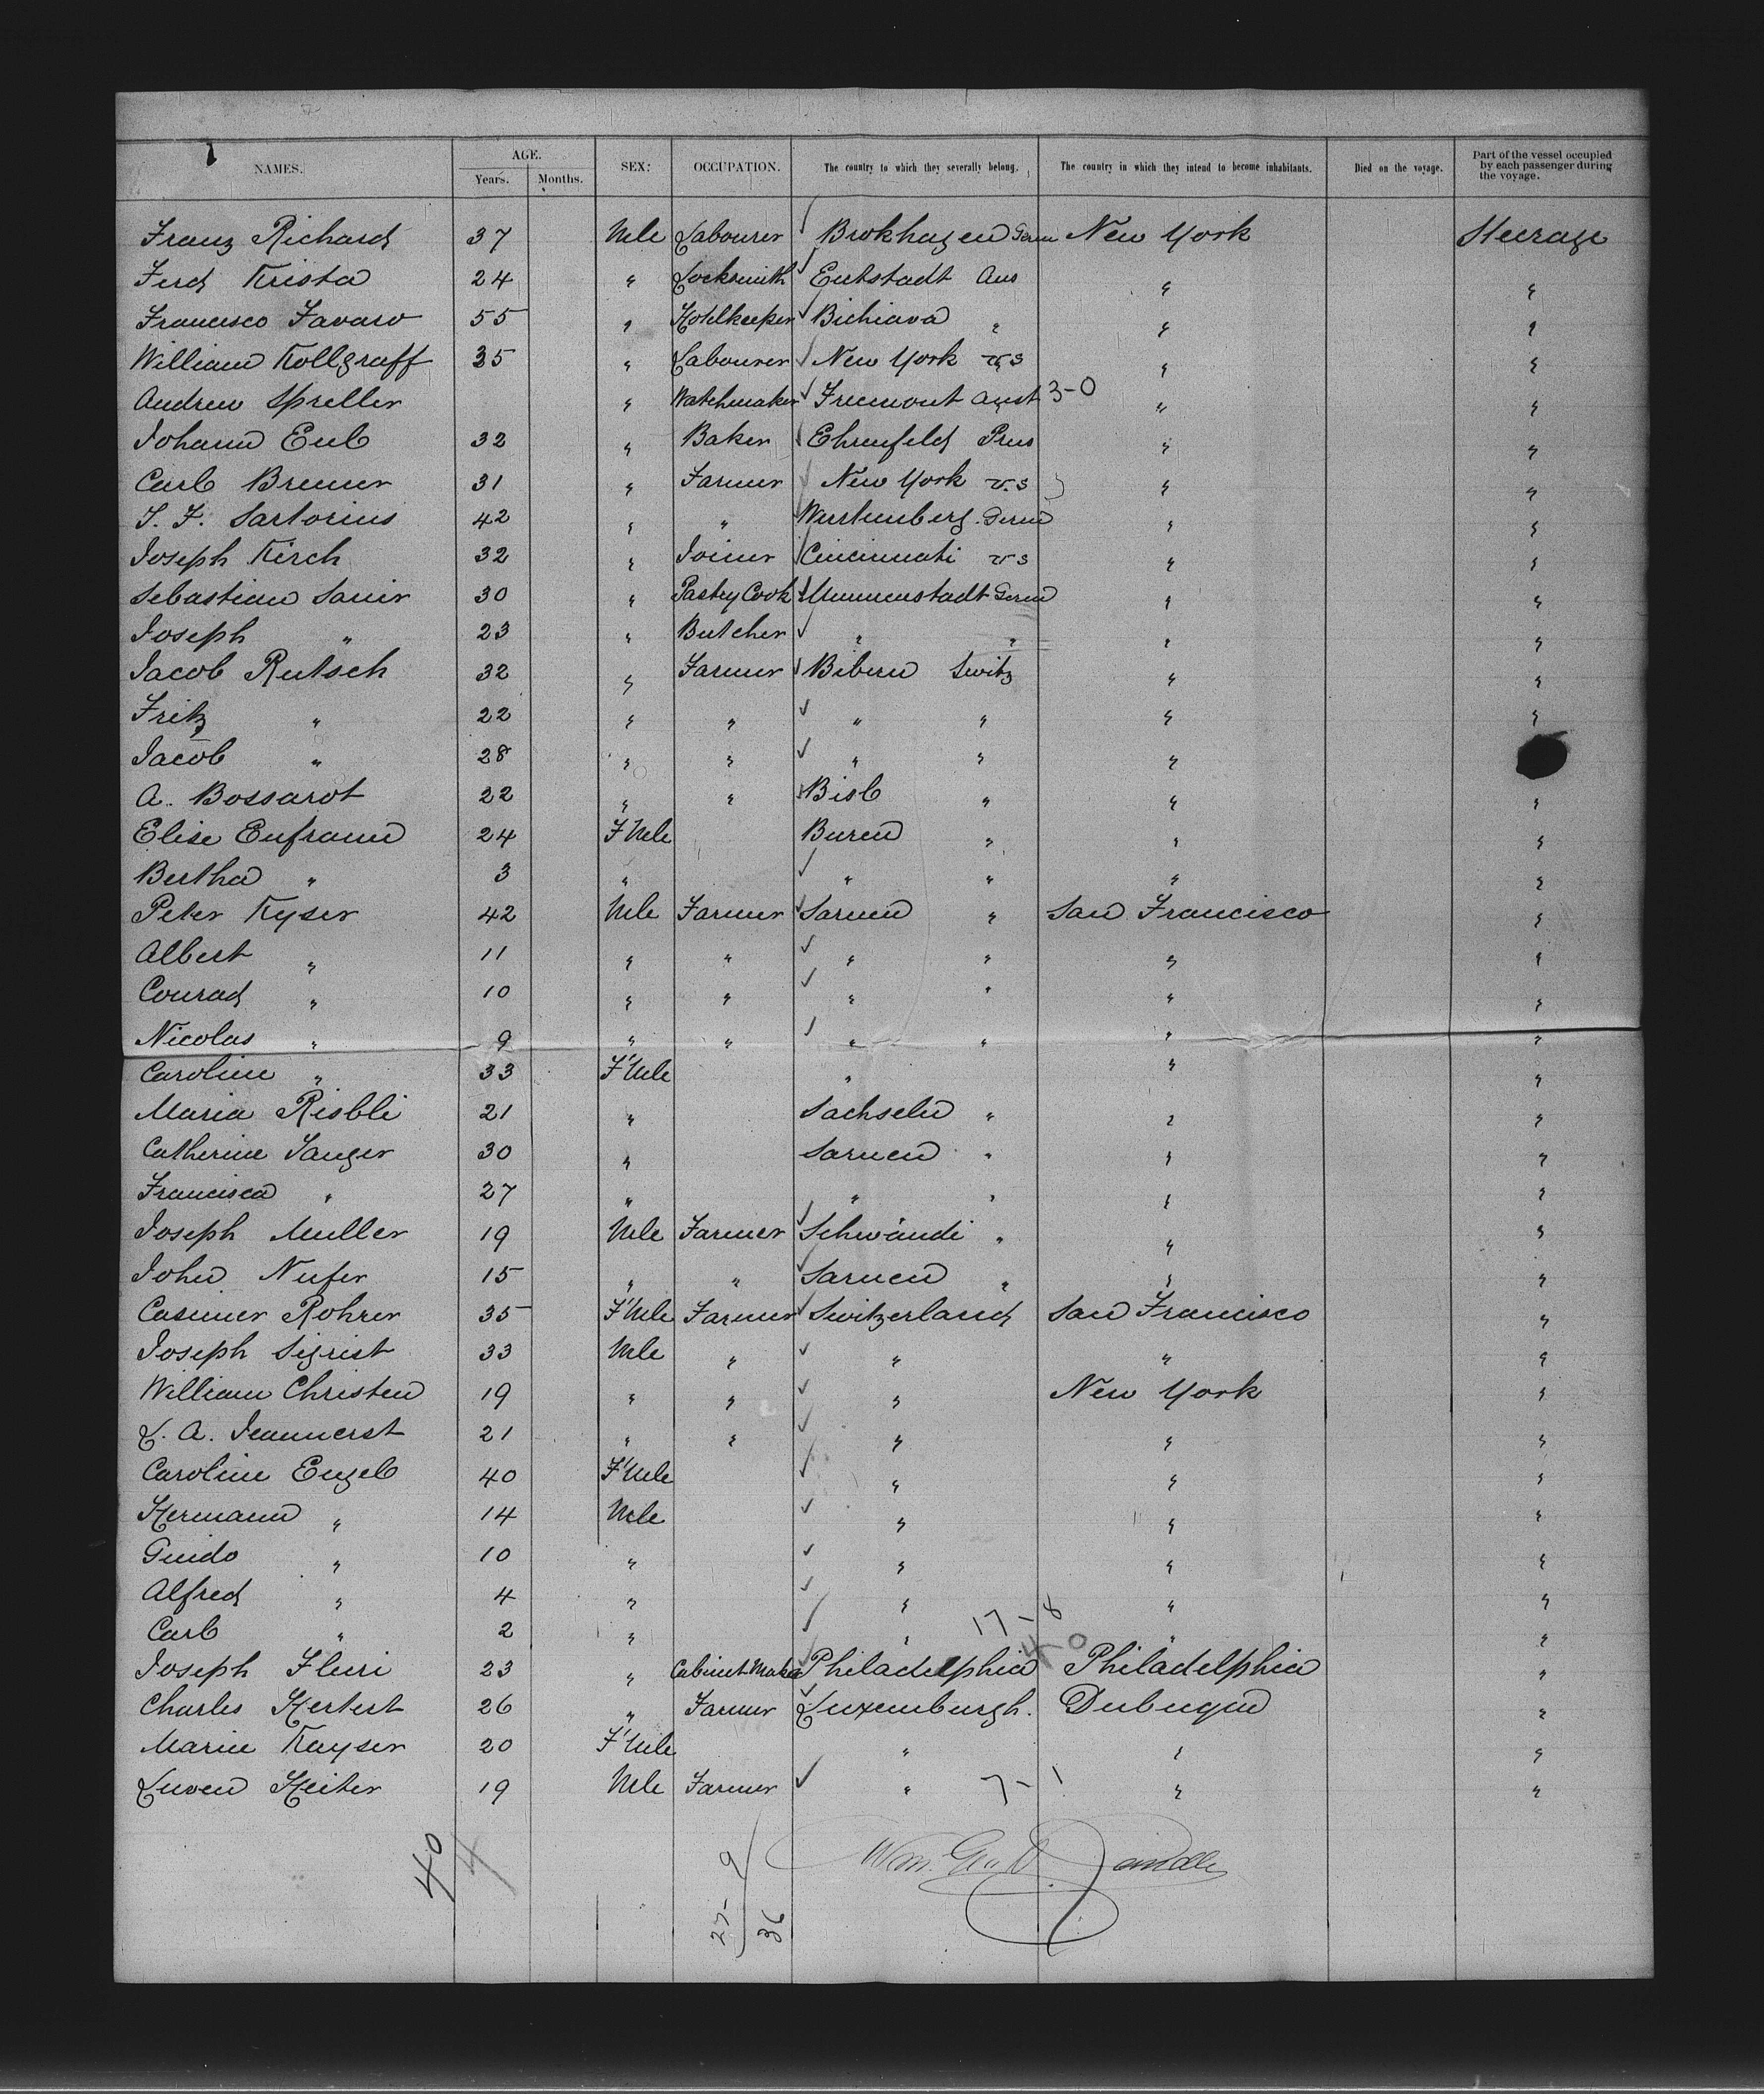 NAMES. AGE. SEX: OCCUPATION. The country to which they severally belong. The country in which they intend to become inhabitants. Died on the voyage. Part of the vessel occupied by each passenger during the voyage.
Years. Months.
Franz Richard 37 Mle Labourer Brokhagen Germ New York Steerage
Ferd Krista 24 " Locksmith Eutstadt Aus " "
Francisco Favaro 55 " Hotelkeeper Bichiava " " "
William Kollgraff 35 " Labourer New York U.S " "
Andrew Spreller " Watchmaker Freemont Aust 3-0 " "
Johann Eul 32 " Baker Ehrenfeld Prus " "
Carl Bremer 31 " Farmer New York U.S " "
J. F. Sartorius 42 " " Wurtemberg. Germ " "
Joseph Kirch 32 " Joiner Cincinnati U S " "
Sebastian Sauer 30 " Pastry Cook Munnenstadt Germ " "
Joseph " 23 " Butcher " " " "
Jacob Rutsch 32 " Farmer Bibern Switz " "
Fritz " 22 " " " " " "
Jacob " 28 " " " " "
A. Bossarot 22 " " Bisl " " "
Elise Eufraun 24 F'Mle Buren " " "
Bertha " 3 " " " " "
Peter Kyser 42 Mle Farmer Sarnen " San Francisco "
Albert " 11 " " " " " "
Conrad " 10 " " " " " "
Nicolas " 9 " " " " " "
Caroline " 33 F'Mle " " "
Maria Risbli 21 " Sachseln " " "
Catherine Sanger 30 " Sarnen " " "
Francisca " 27 " " " " "
Joseph Muller 19 Mle Farmer Schwandi " " "
John Nufer 15 " " Sarnen " " "
Casimer Rohrer 35 F'Mle Farmer Switzerland San Francisco "
Joseph Sigrist 33 Mle " " " "
William Christen 19 " " " New York "
L. A. Jeannerst 21 " " " " "
Caroline Engel 40 F'Mle " " "
Hermann " 14 Mle " " "
Guido " 10 " " " "
Alfred " 4 " " " "
Carl " 2 " " 17-8 " "
Joseph Fluri 23 " Cabinet Maker Philadelphia 40 Philadelphia "
Charles Hertert 26 " Farmer Luxemburgh. Dubuque "
Marie Kayser 20 F'Mle " " "
Luven Heiter 19 Mle Farmer " 7-1 " "
40 4 27-9 36
Wm.